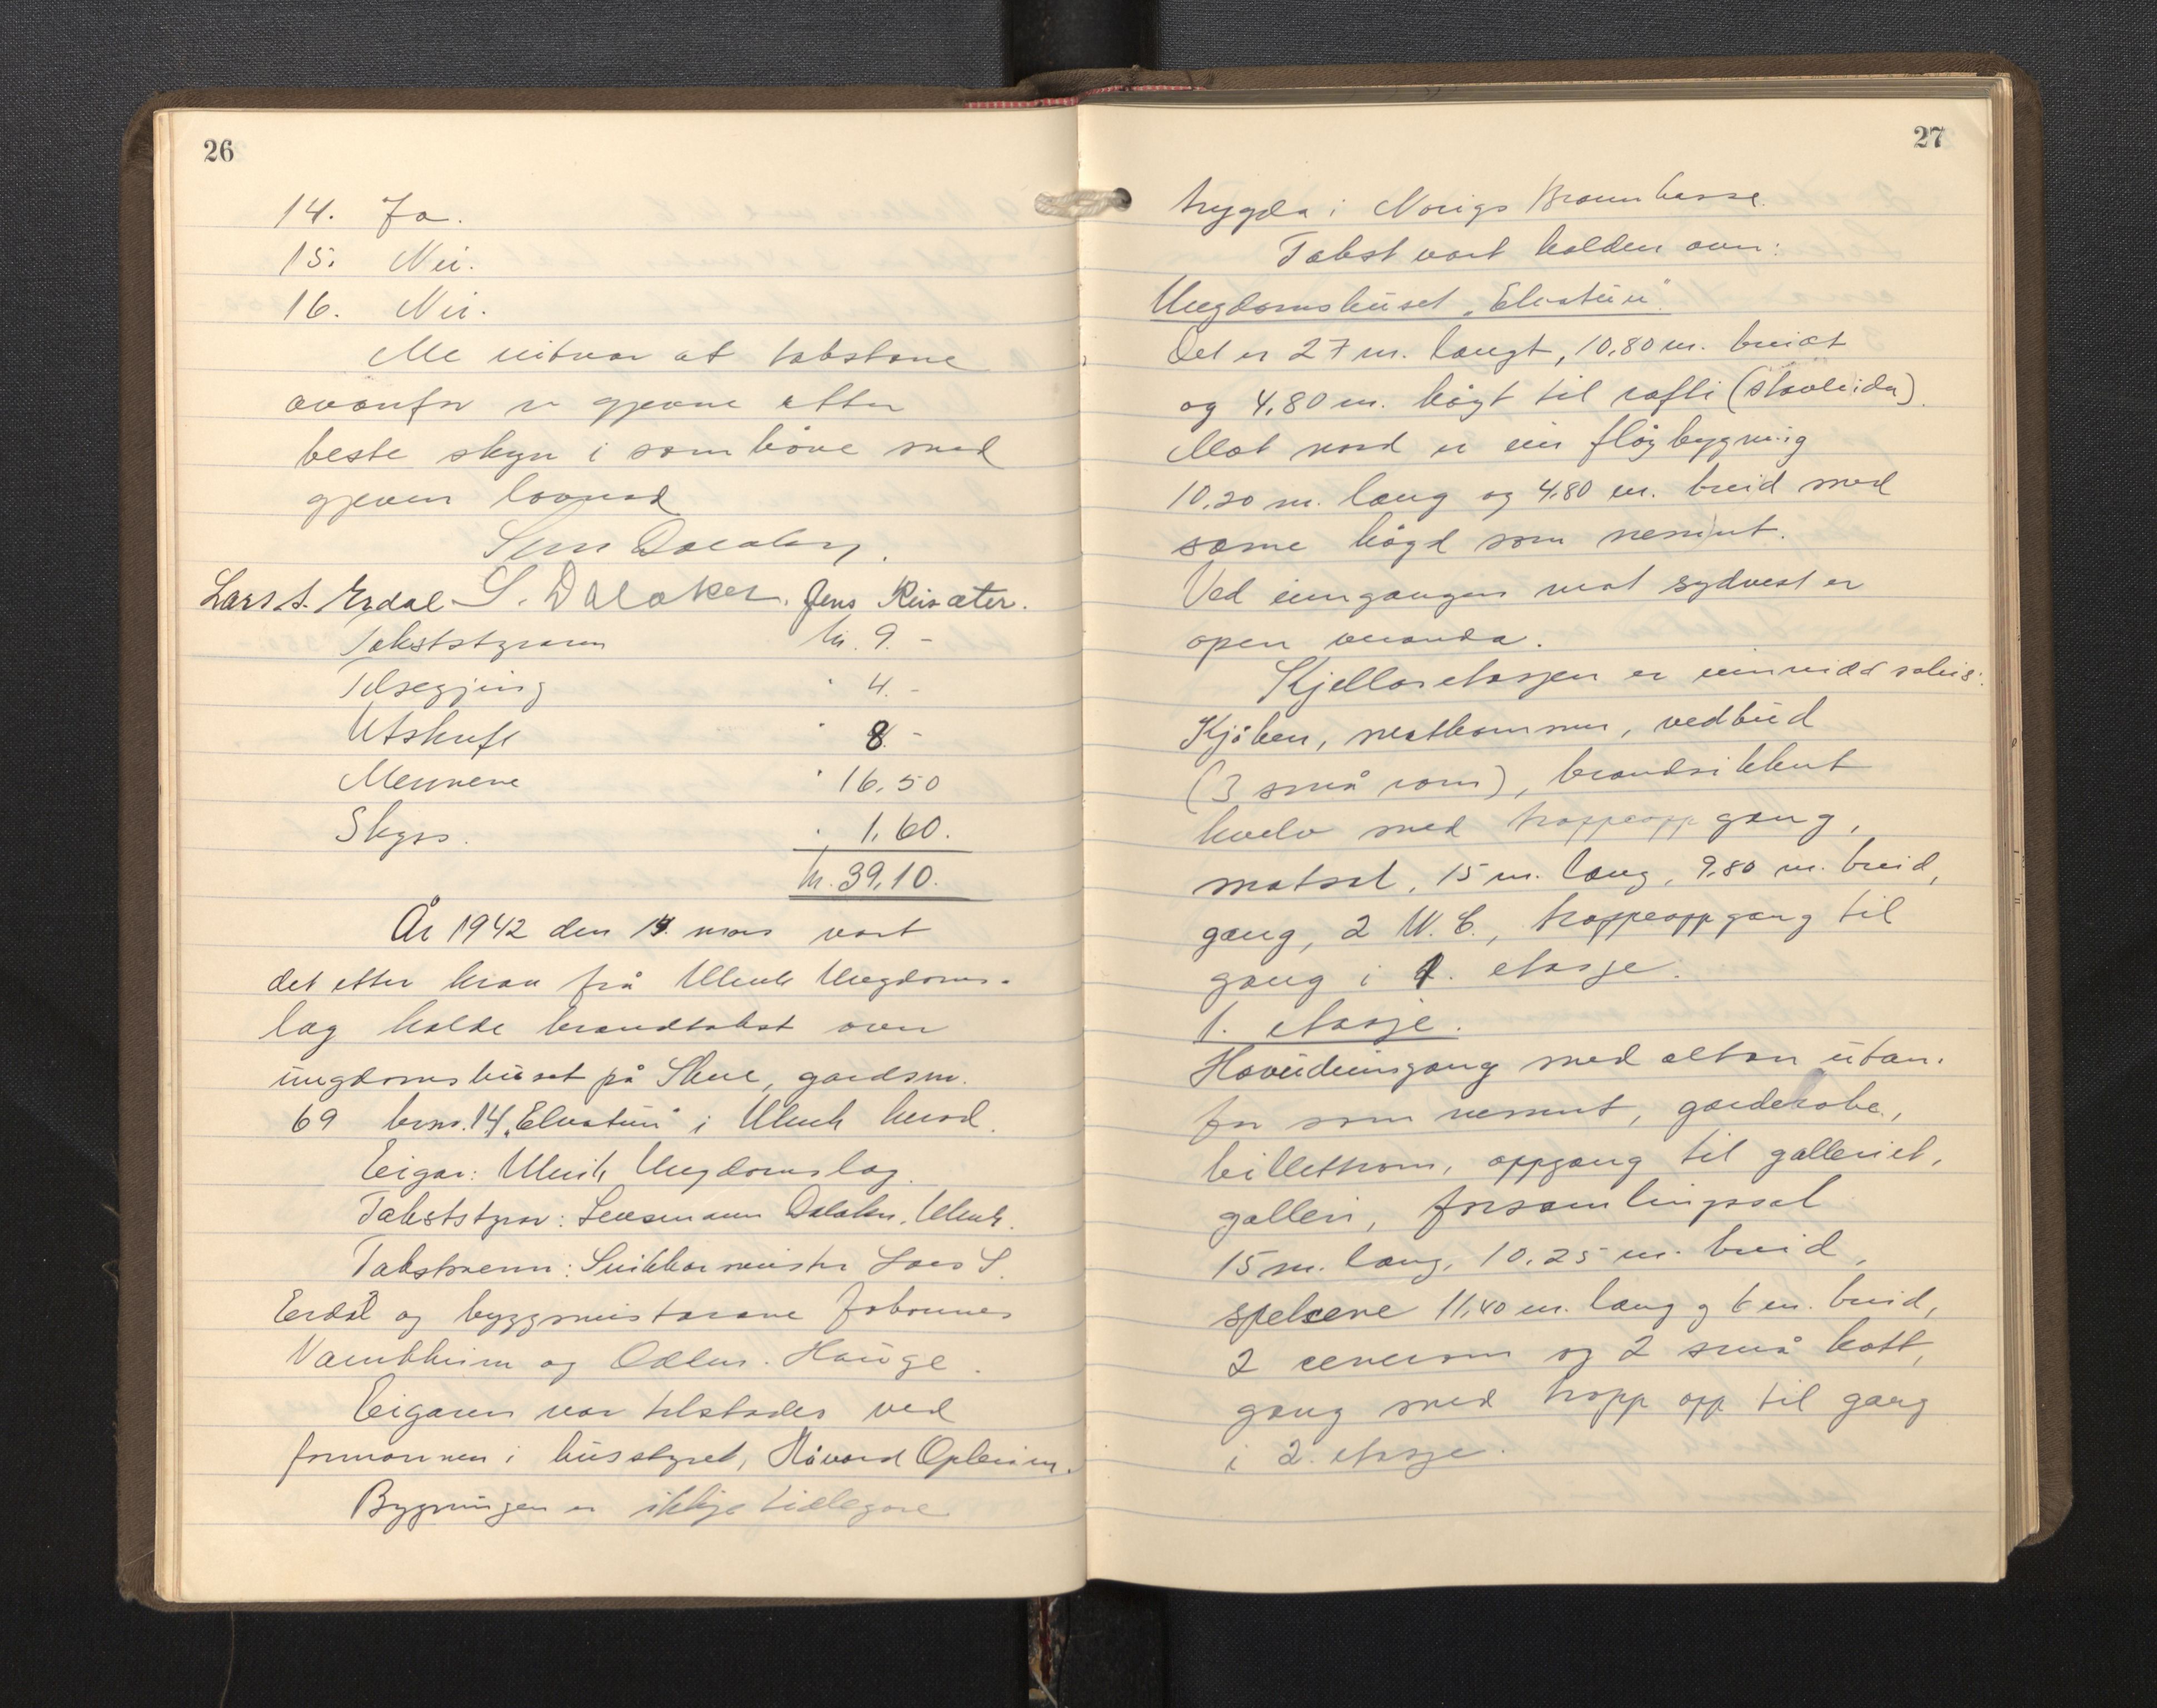 26
14. Ja.
15. Nei.
16. Nei.
Me vitnar at takstane
ovanfor er gjevne etter
beste skyn i samhöve med
gjeven lovnad
Lars S. Erdal S. Dalaker. Jens Risæter.
Takststyraren kr. 9.-
Tilsegjing " 4.-
Utskrift " 8.-
Mennene " 16,50
Skyss. " 1,60.
kr. 39,10.
År 1942 den 14. mars vart
det etter krav frå Ulvik Ungdoms-
lag halde brandtakst over
ungdomshuset på Skeie, gardsnr.
69 brnr. 14 „Elvatun" i Ulvik herad.
Eigar: Ulvik Ungdomslag.
Takststyrar: Lensmann Dalaker, Ulvik.
Takstmenn: Snikkarmeister Lars S.
Erdal og byggmeistarane Johannes
Vambheim og Hauge.
Eigaren var tilstades ved
formannen i husstyret, Håvard Opheim.
Bygningen er ikkje tidlegare
27
trygda i Norigs Brannkasse.
Takst vart halden over:
Ungdomshuset „Elvatun".
Det er 27 m. langt, 10,80 m. breidt
og 4,80 m. högt til rafti (stavleidn).
Mot nord er ein flöybygnig
10,20 m. lang og 4,80 m. breid med
same högd som nemnt.
Ved inngangen mot sydvest er
open veranda.
Kjellaretasjen er innreidd soleis:
Kjöken, matkammer, vedbud
(3 små rom), brandsikkert
kvelv med trappeoppgang,
matsal, 15 m. lang, 9,80 m. breid,
gang, 2 W.C., trappeoppgang til
gang i 1. etasje.
1. etasje.
Hovudinngang med altan utan-
for som nemnt, garderobe,
billettrom, oppgang til galleriet,
galleri, forsamlingssal
15 m. lang, 10,25 m. breid,
spelscene 11,40 m. lang og 6 m. breid,
2 scenerom og 2 små kott,
gang med trapp opp til gang
i 2. etasje.